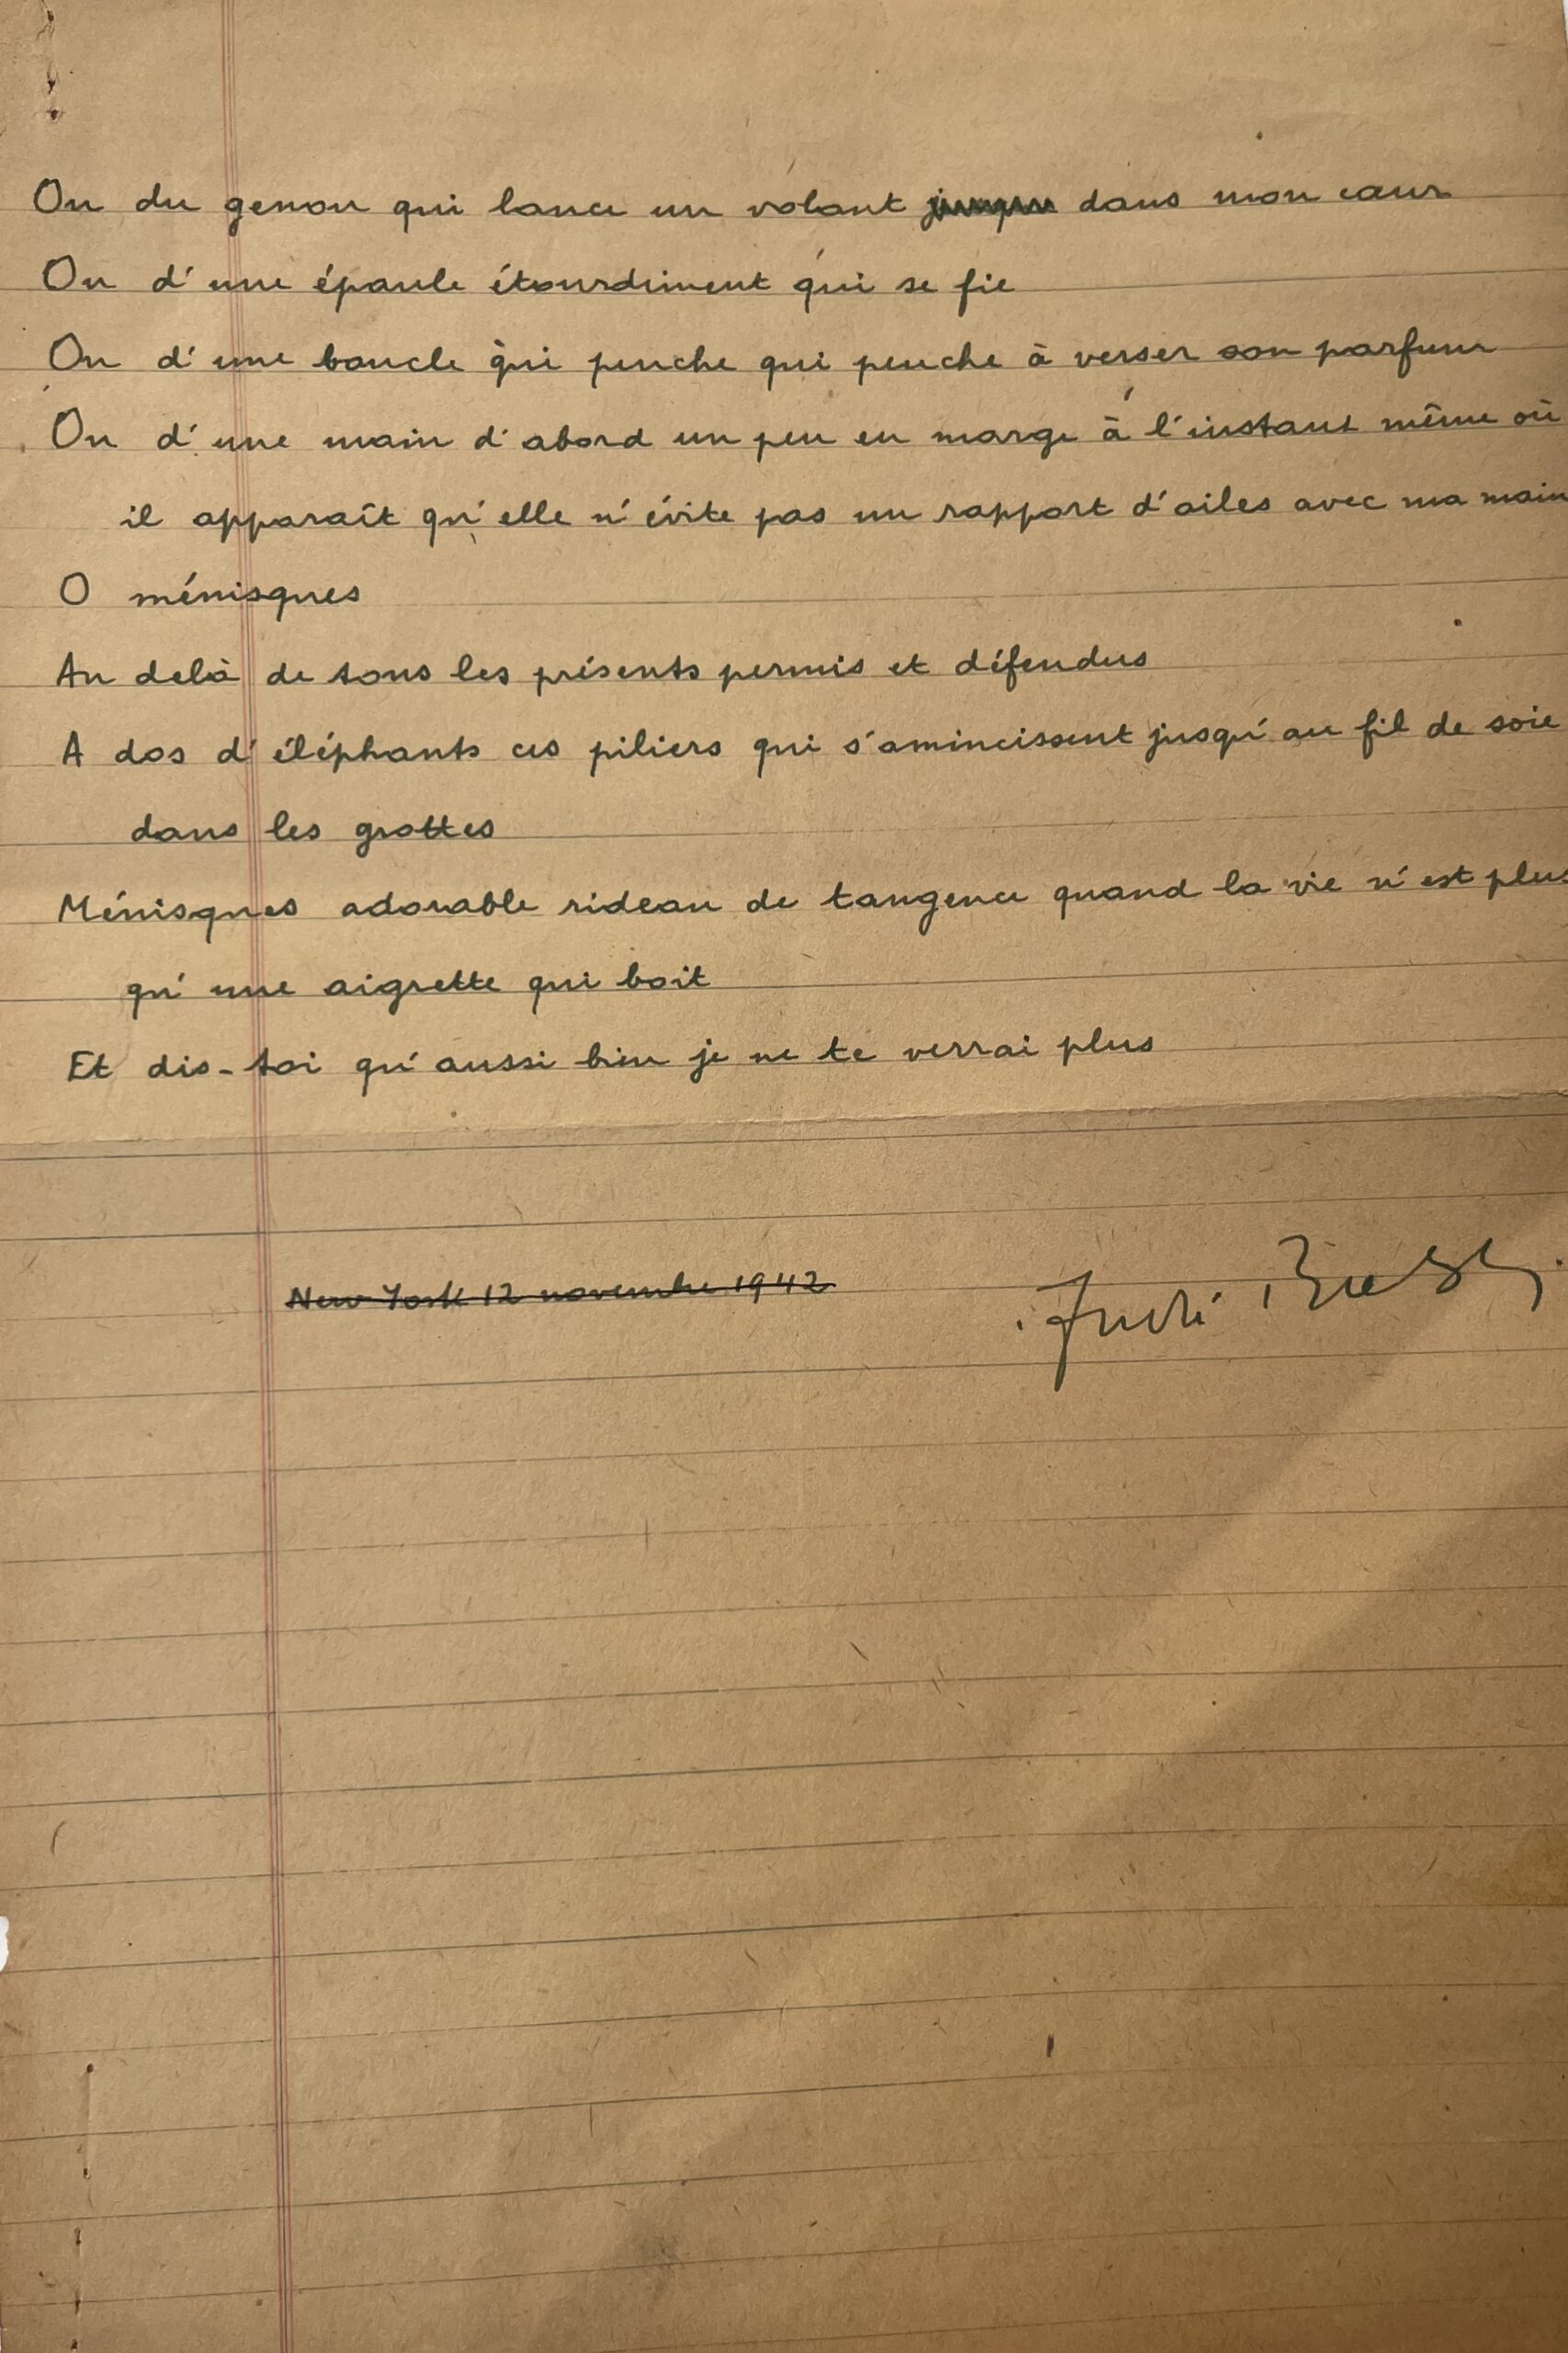 Ou du genou qui lance un volant dans mon cœur
Ou d'une épaule étourdiment qui se fie
Ou d'une boucle qui penche qui penche à verser son parfum
Ou d'une main d'abord un peu en marge à l'instant même où
il apparaît qu'elle n'évite pas un rapport d'ailes avec ma main
O ménisques
Au delà de tous les présents permis et défendus
A dos d'éléphants ces piliers qui s'amincissent jusqu'au fil de soie
dans les grottes
Ménisques adorable rideau de tangence quand la vie n'est plus
qu'une aigrette qui boit
Et dis-toi qu'aussi bien je ne te verrai plus
New York 12 novembre 1942
André Breton